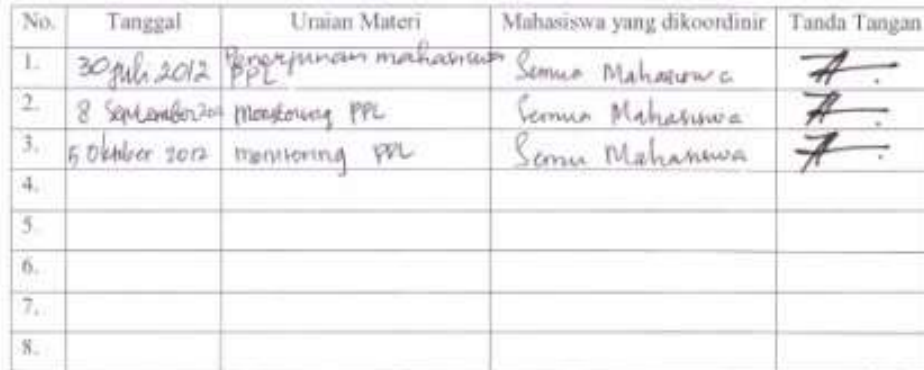 No. Tanggal Uraian Materi Mahasiswa yang dikoordinir Tanda Tangan
1. 30 Juli 2012 Penerjunan mahasiswa PPL Semua Mahasiswa
2. 8 September 201 monitoring PPL Semua Mahasiswa
3. 5 Oktober 2012 monitoring PPL Semua Mahasiswa
4.
5.
6.
7.
8.